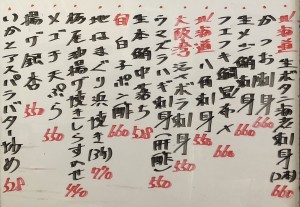 北海道 生ボタン海老刺身(2本) 660
かつお刺身 660
生メジ鮪刺身 660
フエフキ鯛昆布〆 660
北海道 八角刺身 550
大阪湾 活〆ボラ刺身 550
ウマズラハギ刺身 肝酢 550
生本鮪中落ち 528
白子ポン酢 660
地はまぐり浜焼き(3ケ) 770
栃尾油揚げ焼きしらすのせ 440
メゴチ天ぷら 550
揚げ銀杏 550
いかとアスパラバター炒め 528